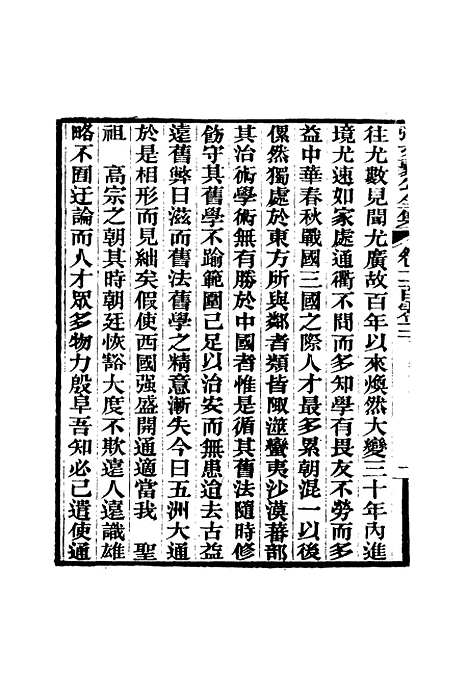 張文襄公全集 卷二百三
往尤數見聞尤廣故百年以來煥然大變三十年內進
境尤速如家處通衢不問而多知學有畏友不勞而多
益中華春秋戰國三國之際人才最多累朝混一以後
傫然獨處於東方所與鄰者類皆陬澨蠻夷沙漠蕃部
其治術學術無有勝於中國者惟是循其舊法隨時修
飭守其舊學不踰範圍已足以治安而無患迨去古益
遠舊弊日滋而舊法舊學之精意漸失今日五洲大通
於是相形而見絀矣假使西國强盛開通適當我 聖
祖 高宗之朝其時朝廷恢豁大度不欺遠人遠識雄
略不囿迂論而人才眾多物力殷阜吾知必已遣使通